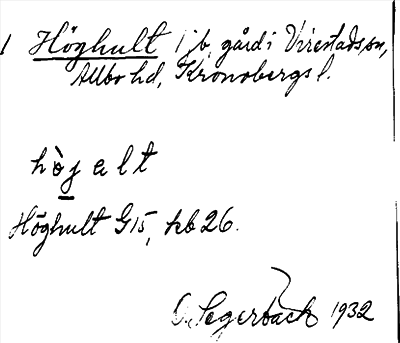 1 Höghult 1 jb, gård i Virestads sn,
Allbo hd, Kronobergs l.
hòjalt
Höghult G15, kb 26.
O. Segerbäck 1932